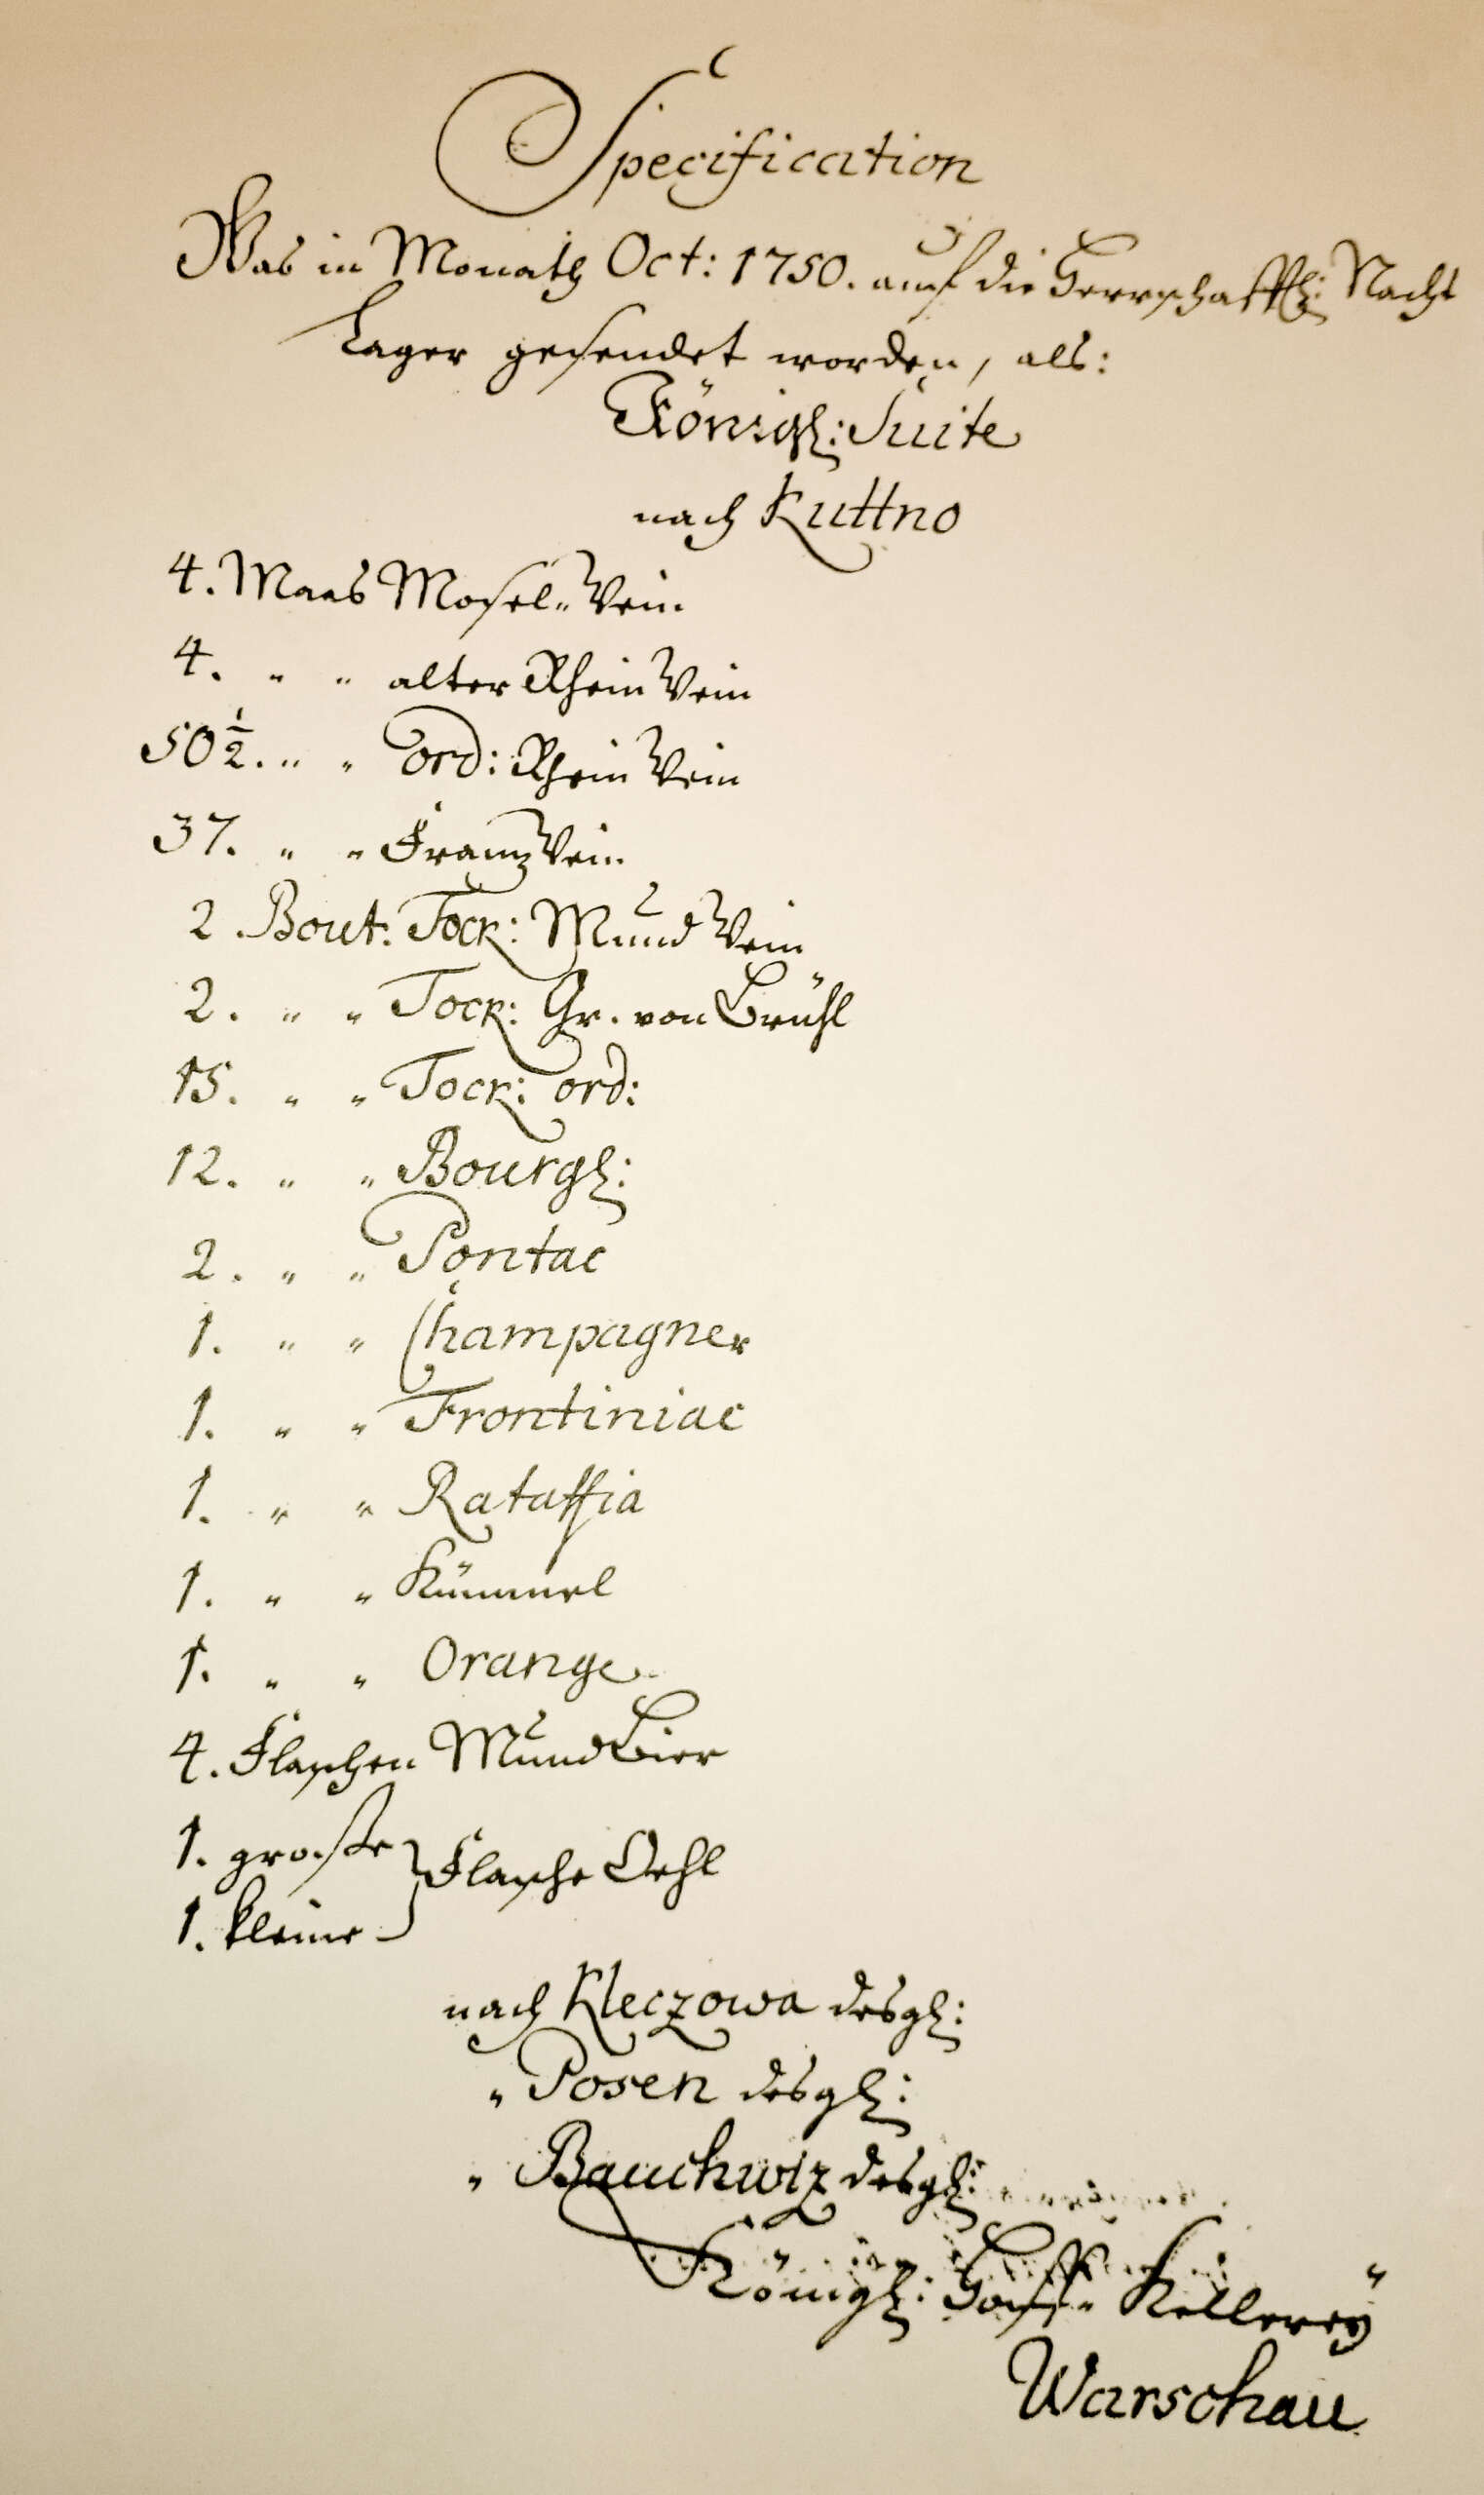 Specification
Was in Monath Oct: 1750. auf die Herrschafftl: Nacht
Lager gesendet worden, als:
Königl: Suite
nach Kuttno
4. Maas Mosel„ Wein
4. „ „ alter Rhein Wein
50 1/2. „ „ ord: Rhein Wein
37. „ „ Franz Wein
2. Bout: Tock: Mund Wein
2. „ „ Tock: Gr. von Brühl
15. „ „ Tock: ord:
12. „ „ Bourgl:
2. „ „ Pontac
1. „ „ Champagner
1. „ „ Frontiniac
1. „ „ Rataffia
1. „ „ Kümmel
1. „ „ Orange
4. Flaschen Mund Bier
1. große } Flasche Oehl
1. kleine
nach Kleczowa desgl:
„ Posen desgl:
„ Bauchwiz desgl:
Königl: Hoff„ Kellerey
Warschau